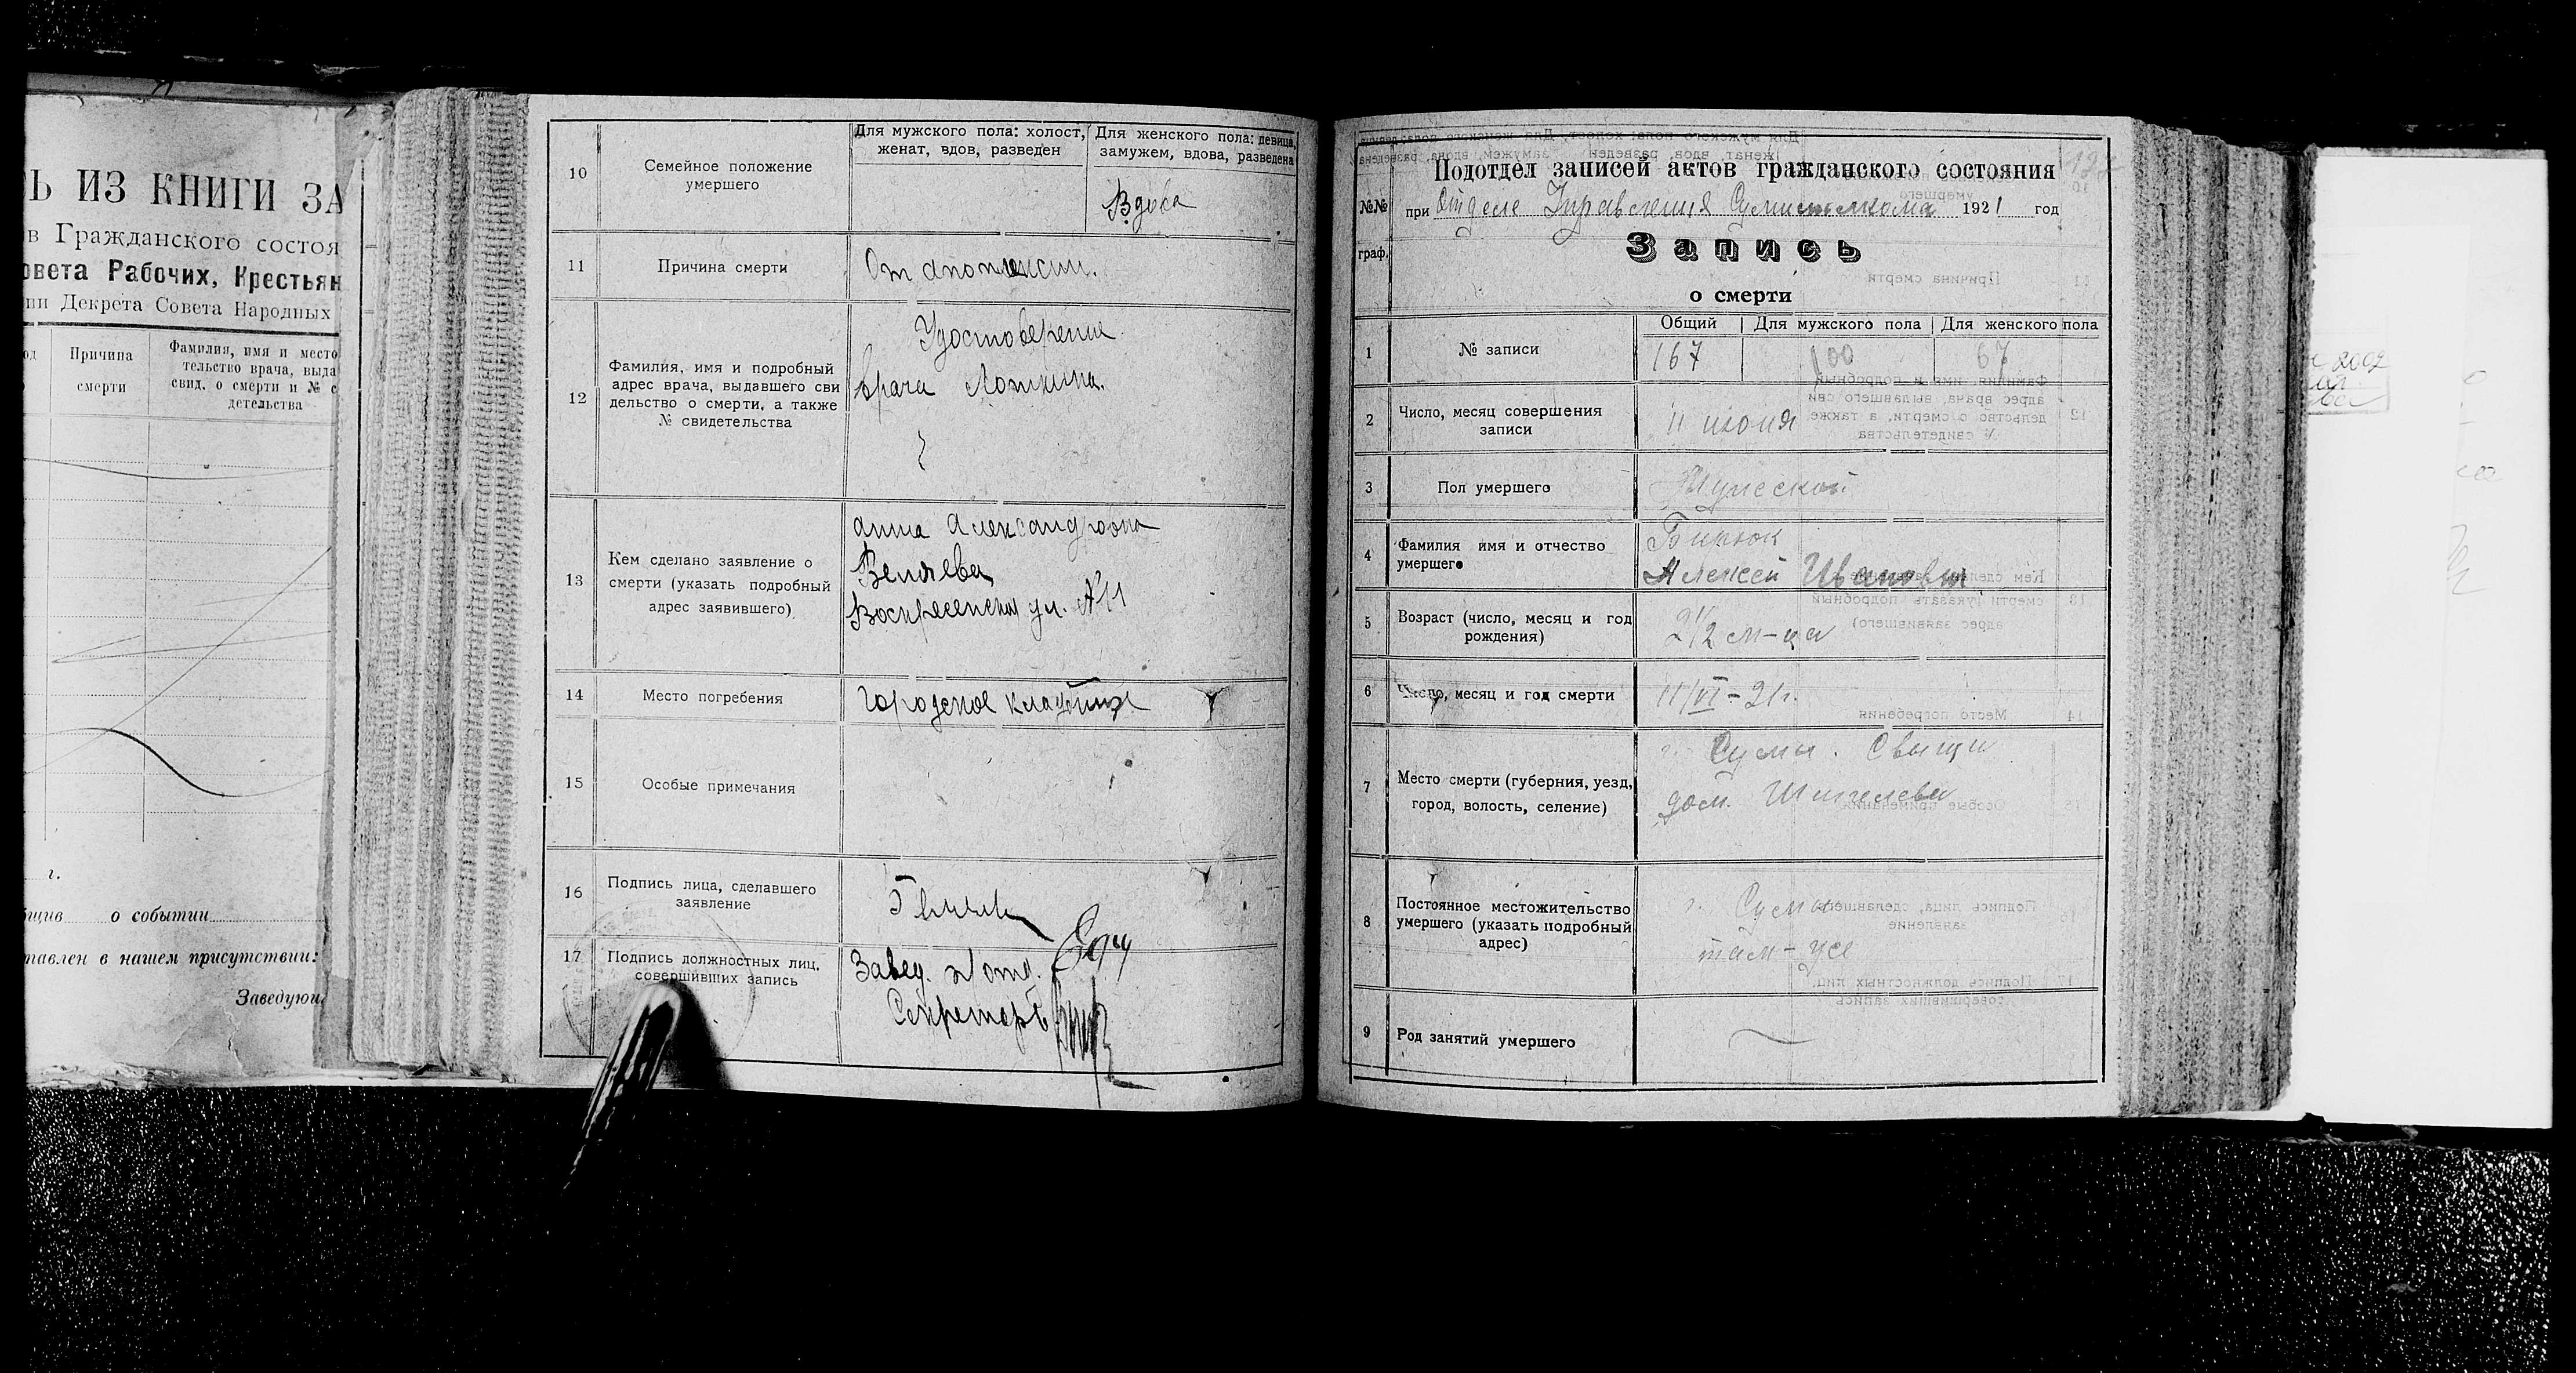 Ь ИЗ КНИГИ ЗА
в Гражданского состоя
овета Рабочих, Крестьян
ии Декрета Совета Народных
од
Причина
смерти
Фамилия, имя и место
тельство врача, выда
свид. о смерти и № с
детельства
г.
бщив о событии
тавлен в нашем присутствии:
Заведующ
10
Семейное положение
умершего
Для мужского пола: холост,
женат, вдов, разведен
Для женского пола: девица,
замужем, вдова, разведена
Вдова
11
Причина смерти
От апоплексии.
12
Фамилия, имя и подробный
адрес врача, выдавшего сви
дельство о смерти, а также
№ свидетельства
Удостоверение
врача Лоткина.
13
Кем сделано заявление о
смерти (указать подробный
адрес заявившего)
Анна Александровна
Воскресенская ул. №11
14
Место погребения
городское кладбище
15
Особые примечания
16
Подпись лица, сделавшего
заявление
17
Подпись должностных лиц,
совершивших запись
Завед. п/отд.
Секретарь
№№
граф.
Подотдел записей актов гражданского состояния
при Отделе Управления Сумисполкома 1921 год
Запись
о смерти
1
№ записи
Общий
Для мужского пола
Для женского пола
167
100
67
2
Число, месяц совершения
записи
11 июня
3
Пол умершего
Мужской
4
Фамилия имя и отчество
умершего
Бирюк
Алексей Иванович
5
Возраст (число, месяц и год
рождения)
2 1/2 м-ца
6
Число, месяц и год смерти
11/VI-21г.
7
Место смерти (губерния, уезд,
город, волость, селение)
г. Сумы.
дом.
8
Постоянное местожительство
умершего (указать подробный
адрес)
г. Сумы
там-же
9
Род занятий умершего